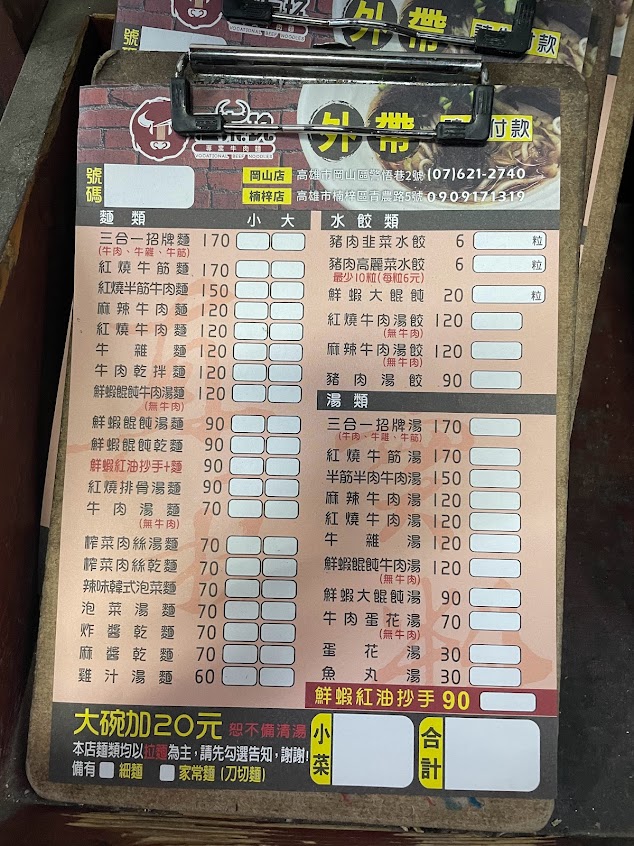 外帶
付款
號
專業牛肉麵
VOCATIONAL BEEF NOODLES
外帶 付款
號碼
岡山店 高雄市岡山區 2號 (07)621-2740
楠梓店 高雄市楠梓區青農路5號 0909171319
麵類 小 大
三合一招牌麵 170
(牛肉、牛雜、牛筋)
紅燒牛筋麵 170
紅燒半筋牛肉麵 150
麻辣牛肉麵 120
紅燒牛肉麵 120
牛雜麵 120
牛肉乾拌麵 120
鮮蝦餛飩牛肉湯麵 120
(無牛肉)
鮮蝦餛飩湯麵 90
鮮蝦餛飩乾麵 90
鮮蝦紅油抄手+麵 90
紅燒排骨湯麵 90
牛肉湯麵 70
(無牛肉)
榨菜肉絲湯麵 70
榨菜肉絲乾麵 70
辣味韓式泡菜麵 70
泡菜湯麵 70
炸醬乾麵 70
麻醬乾麵 70
雞汁湯麵 60
水餃類
豬肉韭菜水餃 6 粒
豬肉高麗菜水餃 6 粒
最少10粒(每粒6元)
鮮蝦大餛飩 20 粒
紅燒牛肉湯餃 120
(無牛肉)
麻辣牛肉湯餃 120
(無牛肉)
豬肉湯餃 90
湯類
三合一招牌湯 170
(牛肉、牛雜、牛筋)
紅燒牛筋湯 170
半筋半肉牛肉湯 150
麻辣牛肉湯 120
紅燒牛肉湯 120
牛雜湯 120
鮮蝦餛飩牛肉湯 120
(無牛肉)
鮮蝦大餛飩湯 90
牛肉蛋花湯 70
(無牛肉)
蛋花湯 30
魚丸湯 30
鮮蝦紅油抄手 90
大碗加20元 恕不備清湯
本店麵類均以拉麵為主,請先勾選告知,謝謝!
備有 細麵 家常麵(刀切麵)
小菜
合計